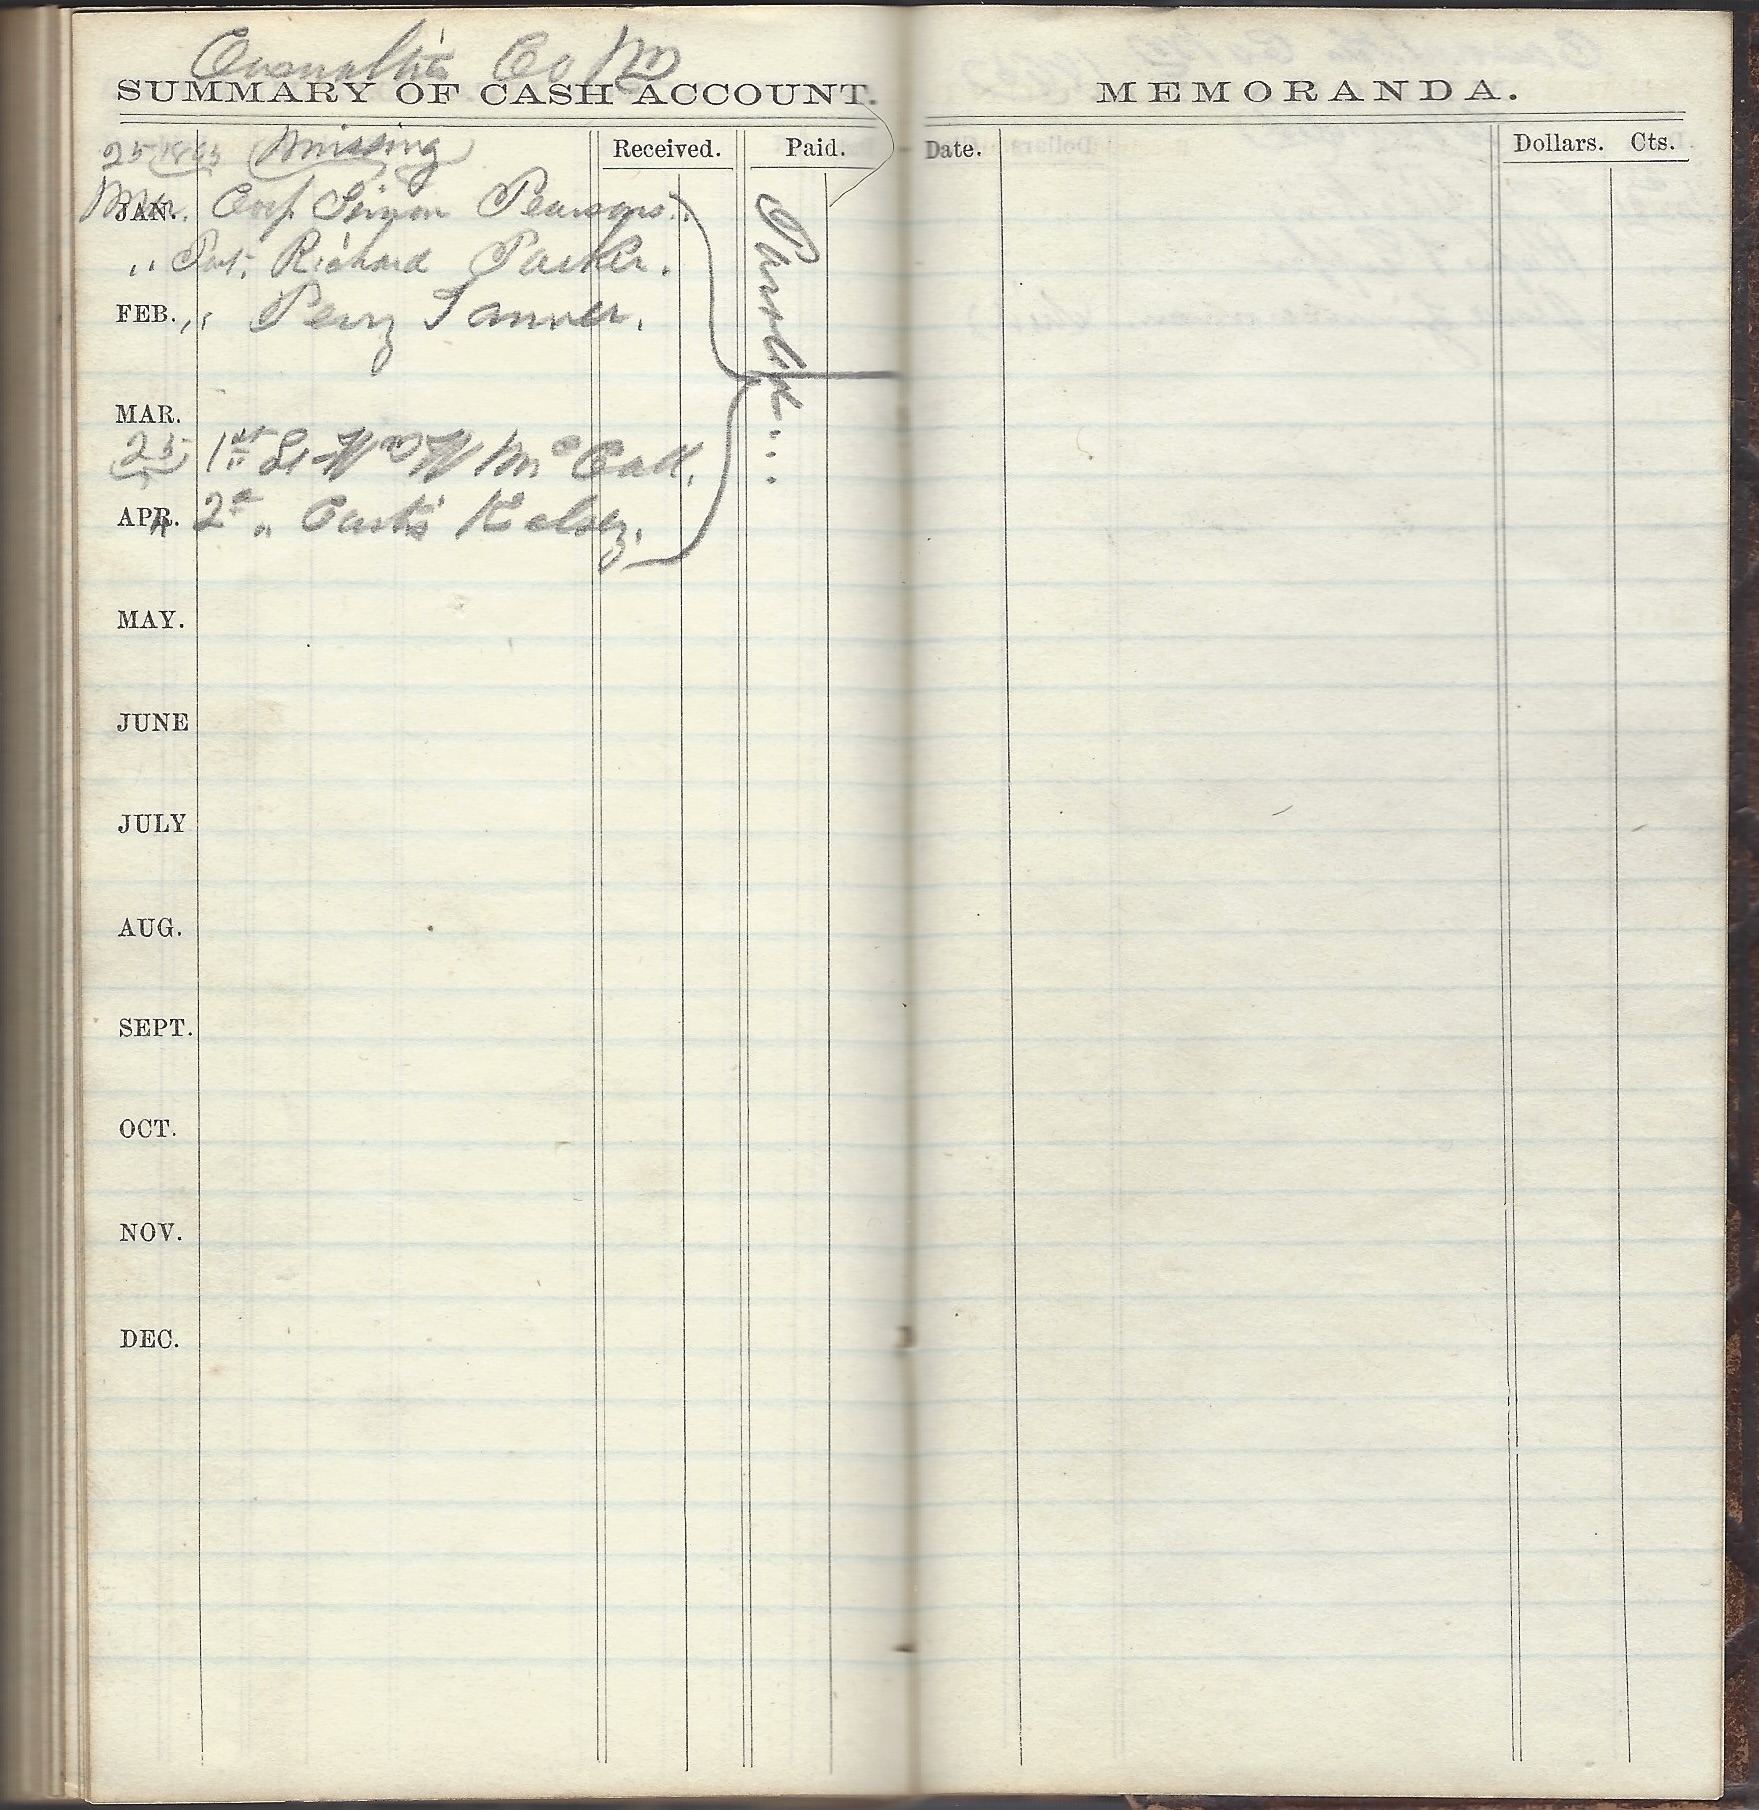 Casualties Co M
SUMMARY OF CASH ACCOUNT.
25 1865 Missing
Received. Paid.
Mar. JAN. Corp. Simon Pearsons.
" Pvt. Richard Parker.
FEB. " " Perry Tanner.
Paroled...
MAR.
25 1st Lt Wm W McCall.
APR. " 2d " Curtis Kelsey.
MAY.
JUNE
JULY
AUG.
SEPT.
OCT.
NOV.
DEC.
MEMORANDA.
Date. Dollars. Cts.